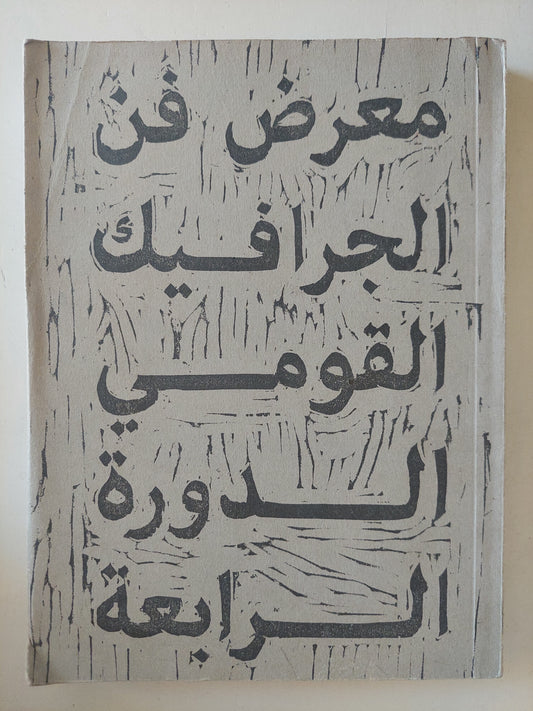 معرض فن
الجرافيك
القومي
الدورة
الرابعة